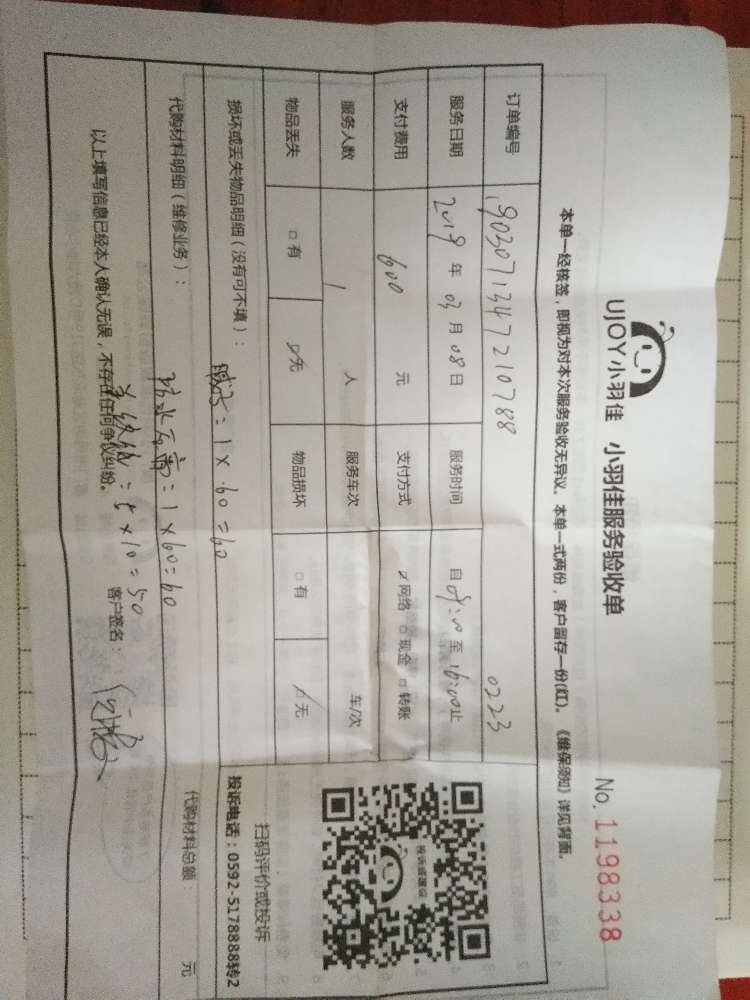 UJOY小羽佳 小羽佳服务验收单 No. 1198338
本单一经核签，即视为对本次服务验收无异议。本单一式两份，客户留存一份(红)。《维保须知》详见背面。
订单编号 1903071347210788 0223
服务日期 2019 年 03 月 08 日 服务时间 自 08:00 至 16:00止
支付费用 600 元 支付方式 ☑网络 □现金 □转账
服务人数 1 人 服务车次 车/次
物品丢失 □有 ☑无 物品损坏 □有 ☑无
损坏或丢失物品明细（没有可不填）：
1×60=60
代购材料明细（维修业务）：
:1×60=60
代购材料总额： 元
=5×10=50
以上填写信息已经本人确认无误，不存在任何争议纠纷。 客户签名：
投诉或建议
扫码评价或投诉
投诉电话：0592-5178888转2